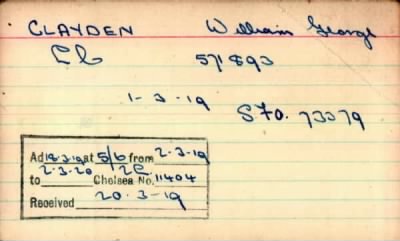 CLAYDEN William George
LC 571893
1-3-19
SFO. 73379
Ad 18.3.19 at 5/6 from 2-3-19
to 2-3-20 2C. Chelsea No. 11404
Received 20.3-19